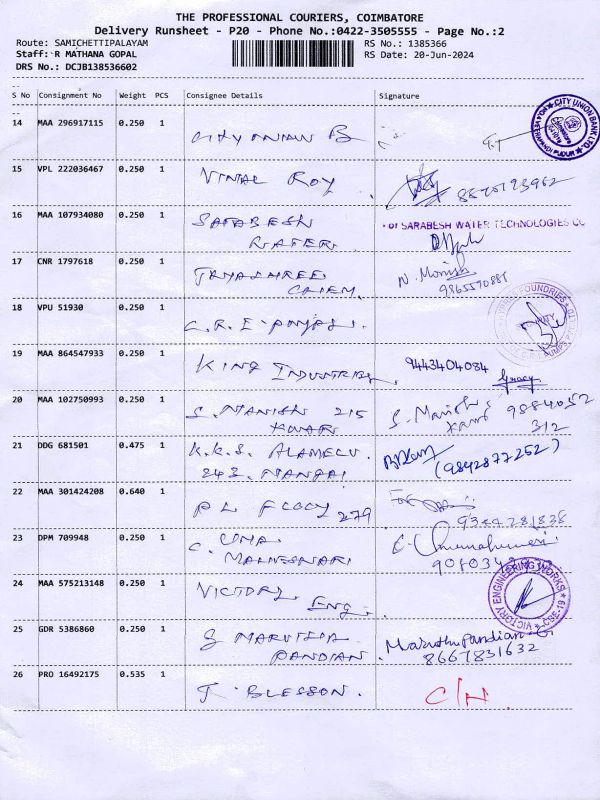 THE PROFESSIONAL COURIERS, COIMBATORE
Delivery Runsheet - P20 - Phone No.:0422-3505555 - Page No.:2
Route: SAMICHETTIPALAYAM
RS No.: 1385366
Staff: R MATHANA GOPAL
RS Date: 20-Jun-2024
DRS No.: DCJB138536602
S No Consignment No Weight PCS Consignee Details Signature
14 MAA 296917115 0.250 1
CITY UNION B
CITY UNION BANK LTD.
VEERAPANDI PUDUR
15 VPL 222036467 0.250 1
VIMAL ROY
16 MAA 107934080 0.250 1
SARABESH
WATER
SARABESH WATER TECHNOLOGIES
17 CNR 1797618 0.250 1
JAYASHREE
CHEM.
N. Monish
18 VPU 51930 0.250 1
C.R.I
FOUNDRIES
PUMPS
19 MAA 864547933 0.250 1
KING INDUSTRIES
9443404084
20 MAA 102750993 0.250 1
S. MANISH 215
KUMAR
S. Manish 9884052
312
21 DDG 681501 0.475 1
K.K.S. ALAMELU
243. MANGAI
(9842877252)
22 MAA 301424208 0.640 1
P L 279
9344281838
23 DPM 709948 0.250 1
C. UMA
MAHESWARI
24 MAA 575213148 0.250 1
VICTORY
ENG.
VICTORY ENGINEERING WORKS
CBE-19
25 GDR 5386860 0.250 1
S MARUTHA
PANDIAN.
Maruthu Pandian. G
8667831632
26 PRO 16492175 0.535 1
J. BLESSON.
C/N